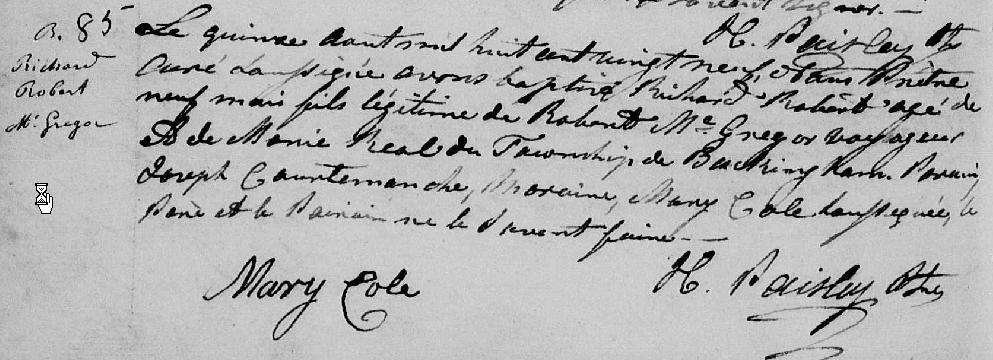 B. 85
Richard
Robert
Mc Gregor
H. Paisley Ptre
Le quinze Aout mil huit cent vingt neuf, Nous Prêtre
Curé Soussigné avons baptisé Richard Robert agé de
neuf mois fils légitime de Robert Mc Gregor voyageur
Et de Marie Neal du Township de Buckingham. Parain
Joseph Courtemanche, Maraine, Mary Cole Soussignée, le
Pere et le Parain ne le Savent faire
Mary Cole
H. Paisley Ptre